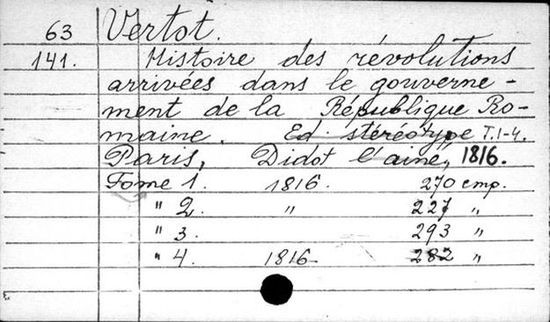 63 Vertot.
141. Histoire des révolutions
arrivées dans le gouverne-
ment de la République Ro-
maine. Ed. stéréotype T.1-4.
Paris, Didot l'ainé, 1816.
Tome 1. 1816. 270 стр.
" 2. " 227 "
" 3. 293 "
" 4. 1816 282 "